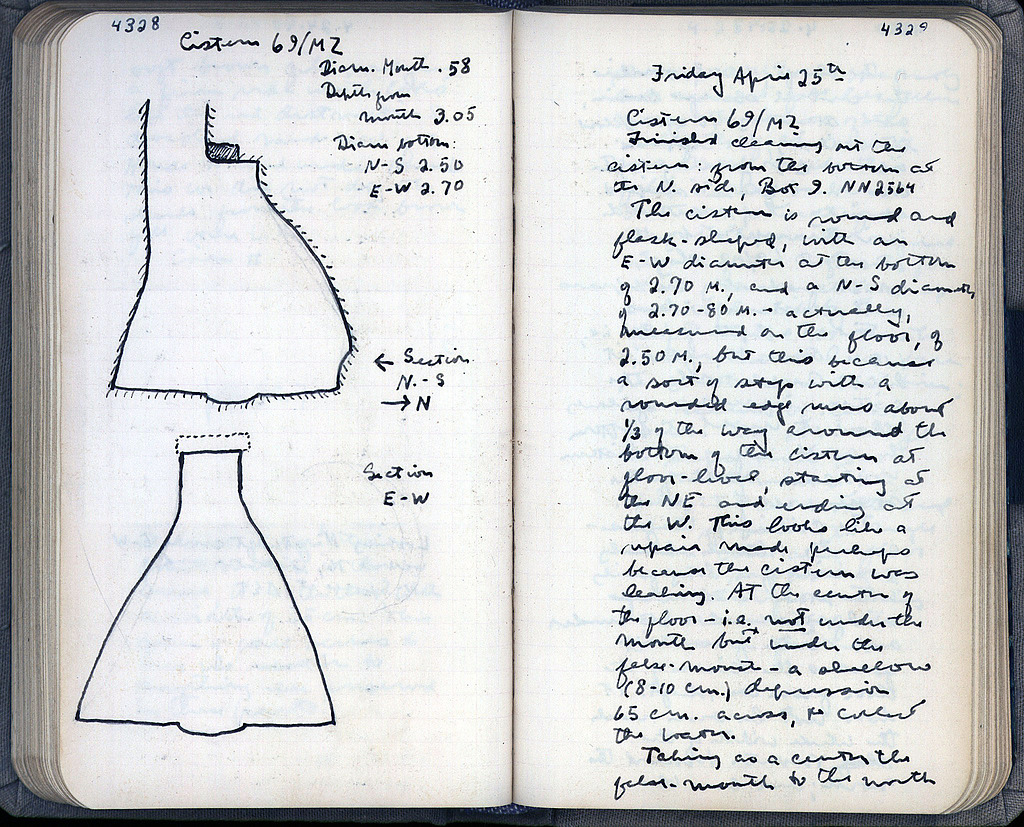 4328
Cistern 69/MZ
Diam. Mouth .58
Depth from
mouth 3.05
Diam bottom:
N-S 2.50
E-W 2.70
← Section
N.-S
→ N
Section
E-W
4329
Friday April 25th
Cistern 69/MZ
Finished cleaning out the
cistern: from the bottom at
the N. side, Box 9. NN2564
The cistern is round and
flask-shaped, with an
E-W diameter at the bottom
of 2.70 M., and a N-S diameter
of 2.70-80 M. - actually,
measured on the floor, of
2.50 M., but this because
a sort of step with a
rounded edge runs about
1/3 of the way around the
bottom of the cistern at
floor-level, starting at
the NE and ending at
the W. This looks like a
repair made perhaps
because the cistern was
leaking. At the center of
the floor - i.e. not under the
mouth but under the
false-mouth - a shallow
(8-10 cm.) depression
65 cm. across, to collect
the water.
Taking as a center the
false-mouth to the north